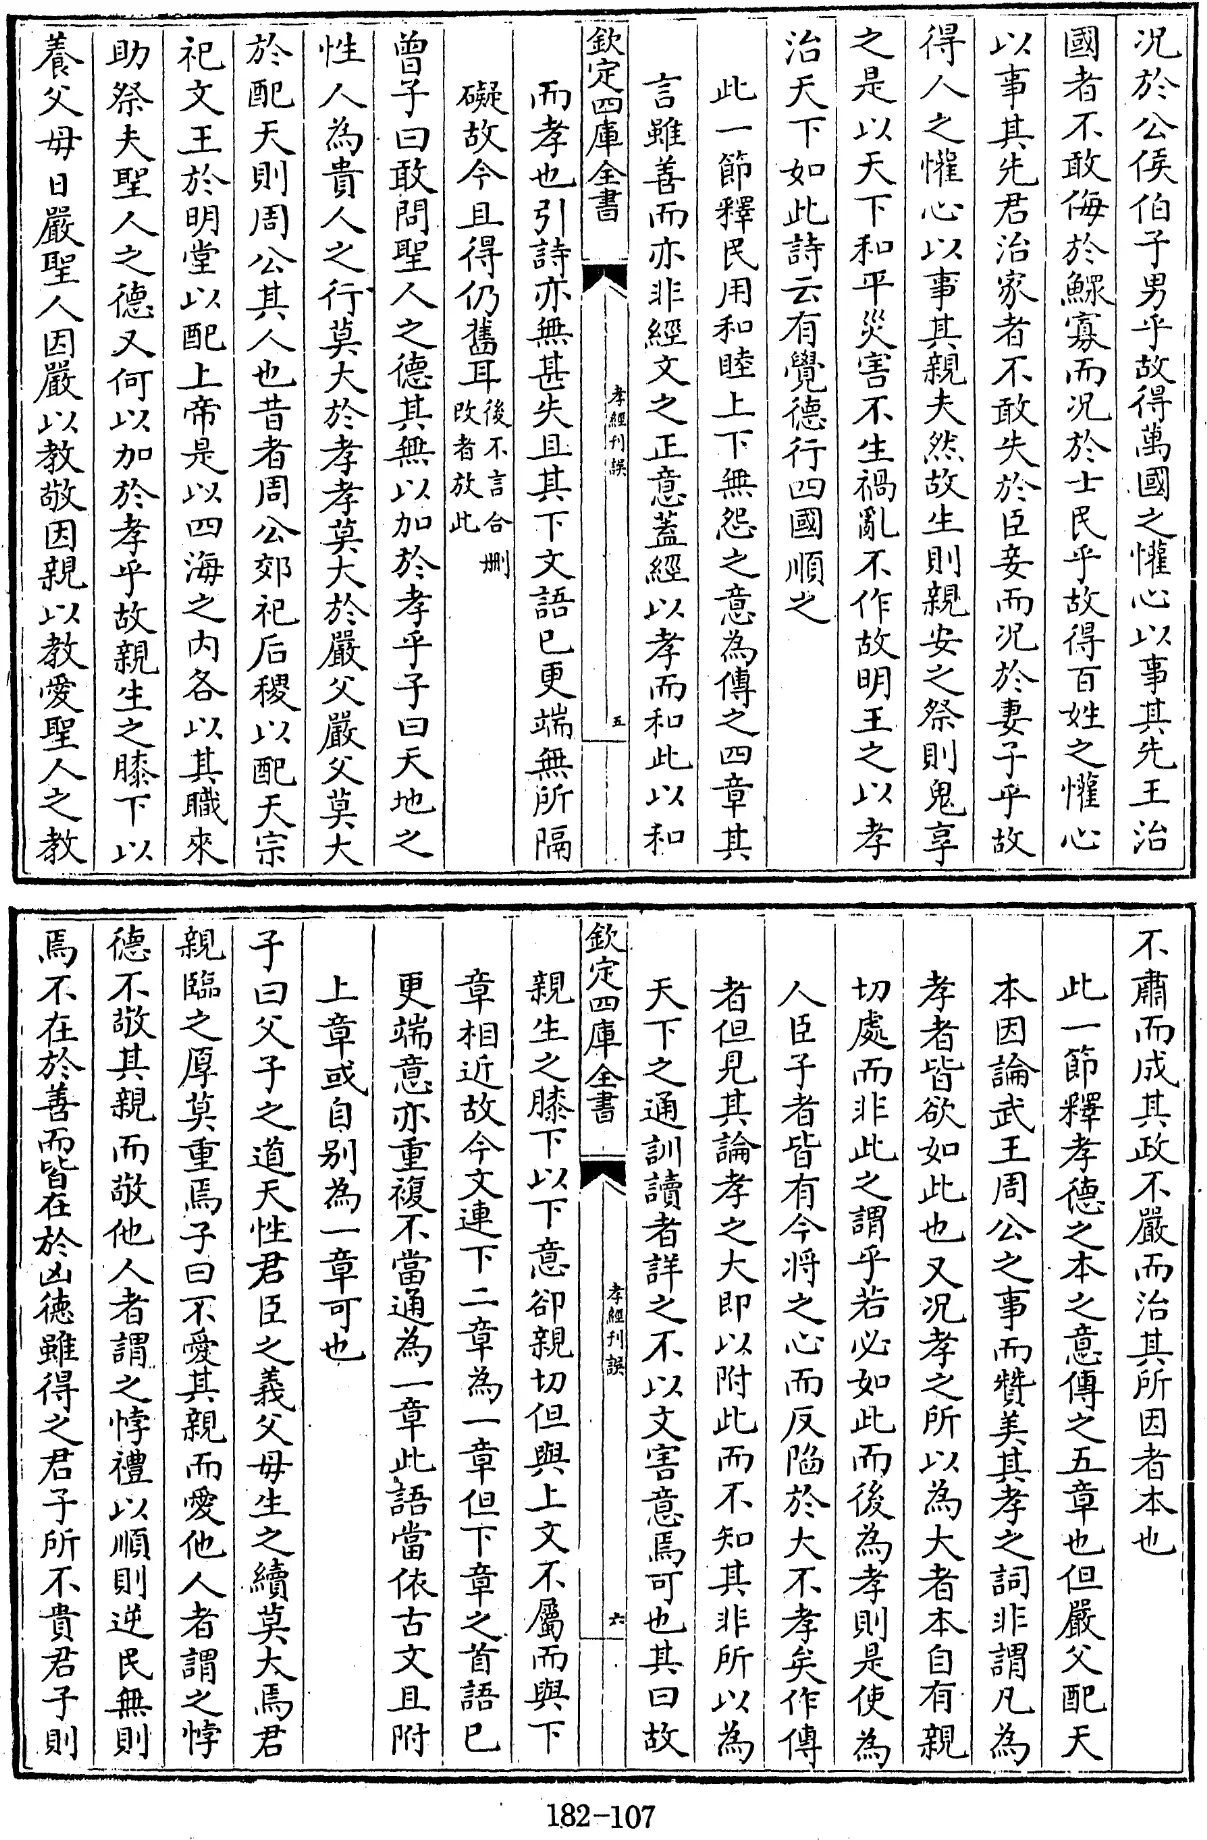 况於公侯伯子男乎故得萬國之懽心以事其先王治
國者不敢侮於鰥寡而况於士民乎故得百姓之懽心
以事其先君治家者不敢失於臣妾而况於妻子乎故
得人之懽心以事其親夫然故生則親安之祭則鬼享
之是以天下和平災害不生禍亂不作故明王之以孝
治天下如此詩云有覺德行四國順之
此一節釋民用和睦上下無怨之意為傳之四章其
言雖善而亦非經文之正意蓋經以孝而和此以和
欽定四庫全書
孝經刊誤
五
而孝也引詩亦無甚失且其下文語已更端無所隔
礙故今且得仍舊耳後不言合刪
改者放此
曾子曰敢問聖人之德其無以加於孝乎子曰天地之
性人為貴人之行莫大於孝孝莫大於嚴父嚴父莫大
於配天則周公其人也昔者周公郊祀后稷以配天宗
祀文王於明堂以配上帝是以四海之内各以其職來
助祭夫聖人之德又何以加於孝乎故親生之膝下以
養父母日嚴聖人因嚴以教敬因親以教愛聖人之教
不肅而成其政不嚴而治其所因者本也
此一節釋孝德之本之意傳之五章也但嚴父配天
本因論武王周公之事而贊美其孝之詞非謂凡為
孝者皆欲如此也又况孝之所以為大者本自有親
切處而非此之謂乎若必如此而後為孝則是使為
人臣子者皆有今將之心而反陷於大不孝矣作傳
者但見其論孝之大即以附此而不知其非所以為
天下之通訓讀者詳之不以文害意焉可也其曰故
欽定四庫全書
孝經刊誤
六
親生之膝下以下意卻親切但與上文不屬而與下
章相近故今文連下二章為一章但下章之首語已
更端意亦重複不當通為一章此語當依古文且附
上章或自别為一章可也
子曰父子之道天性君臣之義父母生之續莫大焉君
親臨之厚莫重焉子曰不愛其親而愛他人者謂之悖
德不敬其親而敬他人者謂之悖禮以順則逆民無則
焉不在於善而皆在於凶德雖得之君子所不貴君子則
182-107